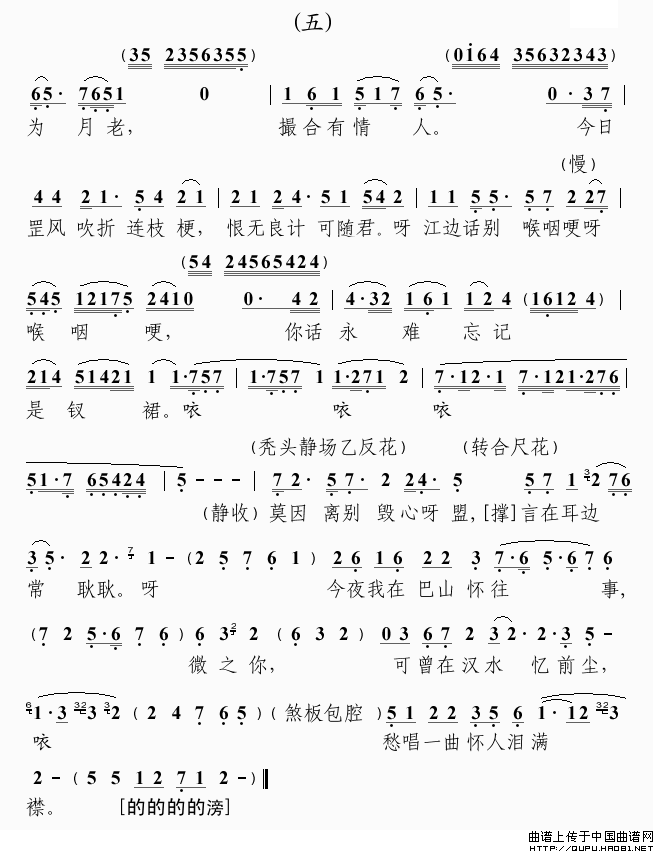 (五)
(35 2356355) (0i64 35632343)
65· 7651 0 | 161 517 65· 0·37 |
为 月老, 撮合有情 人。 今日
(慢)
44 21· 54 21 | 21 24· 51 542 | 11 55· 57 227 |
罡风 吹折 连枝 梗, 恨无良计 可随君。呀 江边话别 喉咽哽呀
(54 24565424)
545 12175 2410 0· 42 | 4·32 161 124 (16124) |
喉 咽 哽, 你话 永 难 忘记
214 51421 1 1·757 | 1·757 1 1·271 2 | 7·12·1 7·121·276 |
是 钗 裙。咹 咹 咹
(秃头静场乙反花) (转合尺花)
51·7 65424 | 5 - - - | 72· 57· 224· 5 57 1 3 276
(静收) 莫因 离别 毁心呀 盟,[撑]言在耳边
35· 22· 7 1 - (2 5 7 6 1) 26 16 22 3 7·65·67 6
常 耿耿。呀 今夜我在 巴山 怀往 事,
(7 2 5·6 7 6) 6 3 2 2 (6 3 2) 03 67 2 32· 2·3 5 -
微 之 你, 可曾在 汉水 忆前尘,
6 1·3 32 3 3 2 (2 4 7 6 5) (煞板包腔) 51 22 35 6 1·12 32 3
咹 愁唱一曲 怀人泪 满
2 - (5 5 12 71 2 -)
襟。 [的的的的滂]
曲谱上传于中国曲谱网
http://QUPU.HAO81.NET